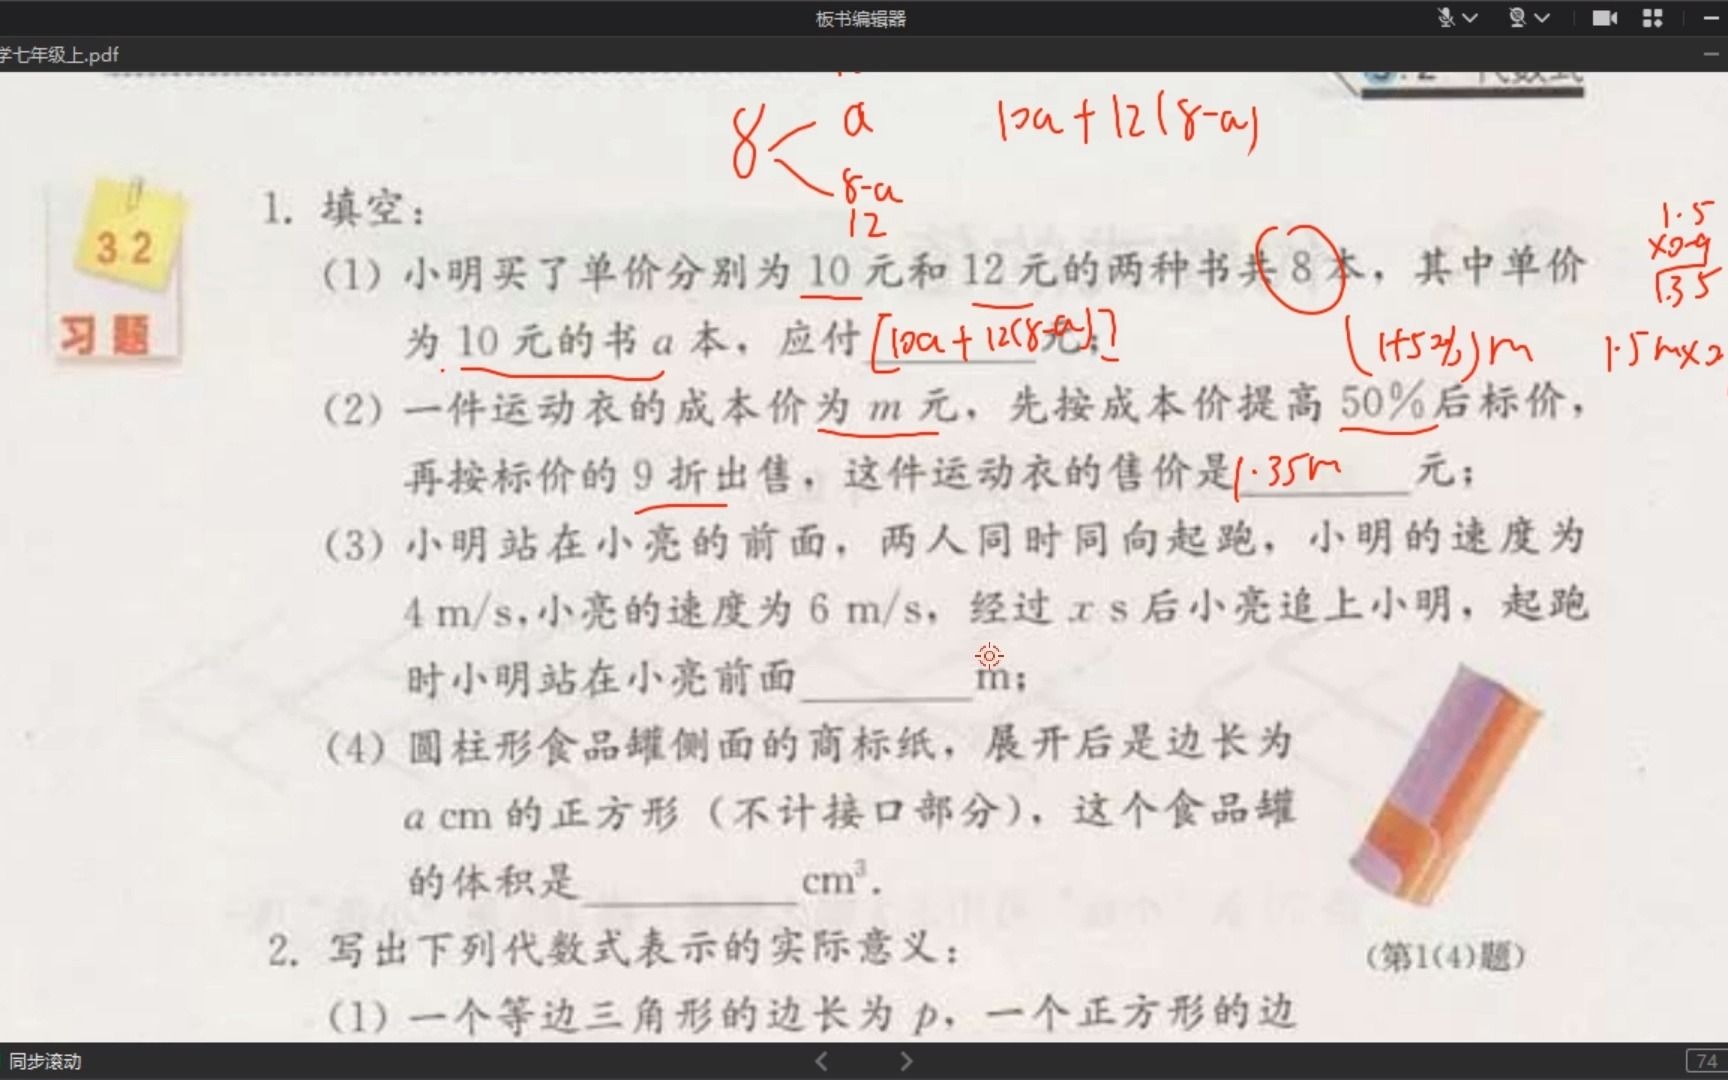 板书编辑器
学七年级上.pdf
3.2 代数式
8 a 10a+12(8-a)
8-a
12
32
习题
1. 填空：
(1) 小明买了单价分别为 10 元和 12 元的两种书共 8 本，其中单价
为 10 元的书 a 本，应付 [10a+12(8-a)] 元；
1.5
×0.9
1.35
(1+50%)m 1.5m×0
(2) 一件运动衣的成本价为 m 元，先按成本价提高 50% 后标价，
再按标价的 9 折出售，这件运动衣的售价是 1.35m 元；
(3) 小明站在小亮的前面，两人同时同向起跑，小明的速度为
4 m/s，小亮的速度为 6 m/s，经过 x s 后小亮追上小明，起跑
时小明站在小亮前面________m；
(4) 圆柱形食品罐侧面的商标纸，展开后是边长为
a cm 的正方形（不计接口部分），这个食品罐
的体积是________cm³.
(第1(4)题)
2. 写出下列代数式表示的实际意义：
(1) 一个等边三角形的边长为 p，一个正方形的边
同步滚动
74